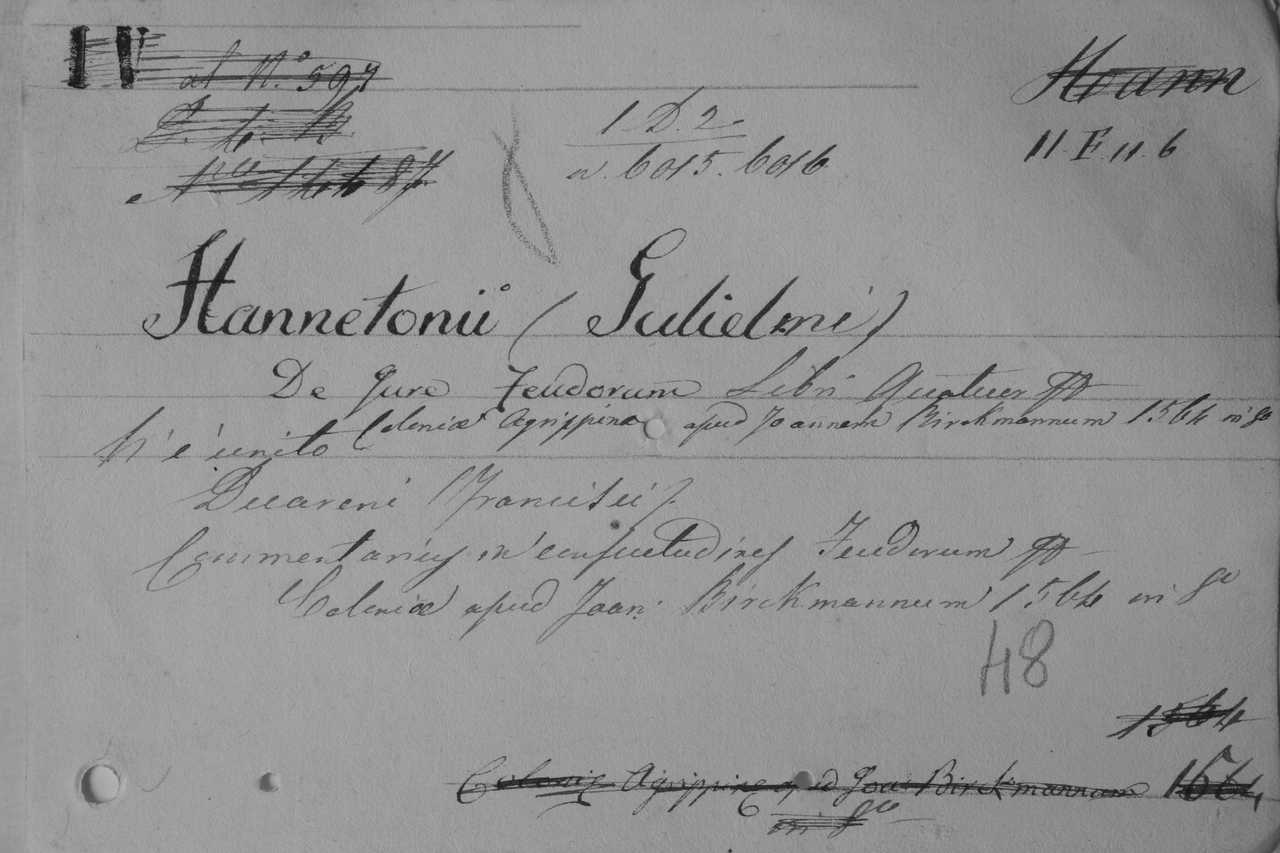 al N.° 597
Hoann
I. D. 2.
11. F. 11. 6
n. 6015. 6016
Hannetonii (Gulielmi)
De Jure Feudorum Libri Quatuor
Coloniæ Agrippinæ apud Joannem Birckmannum 1564 in 8°
V' è unito
Duareni (Francisci).
Commentarius in consuetudines Feudorum
Coloniæ apud Joan: Birckmannum 1564 in 8°
48
1564
Coloniæ Agrippinæ apud Joa: Birckmannum 1564
in 8°